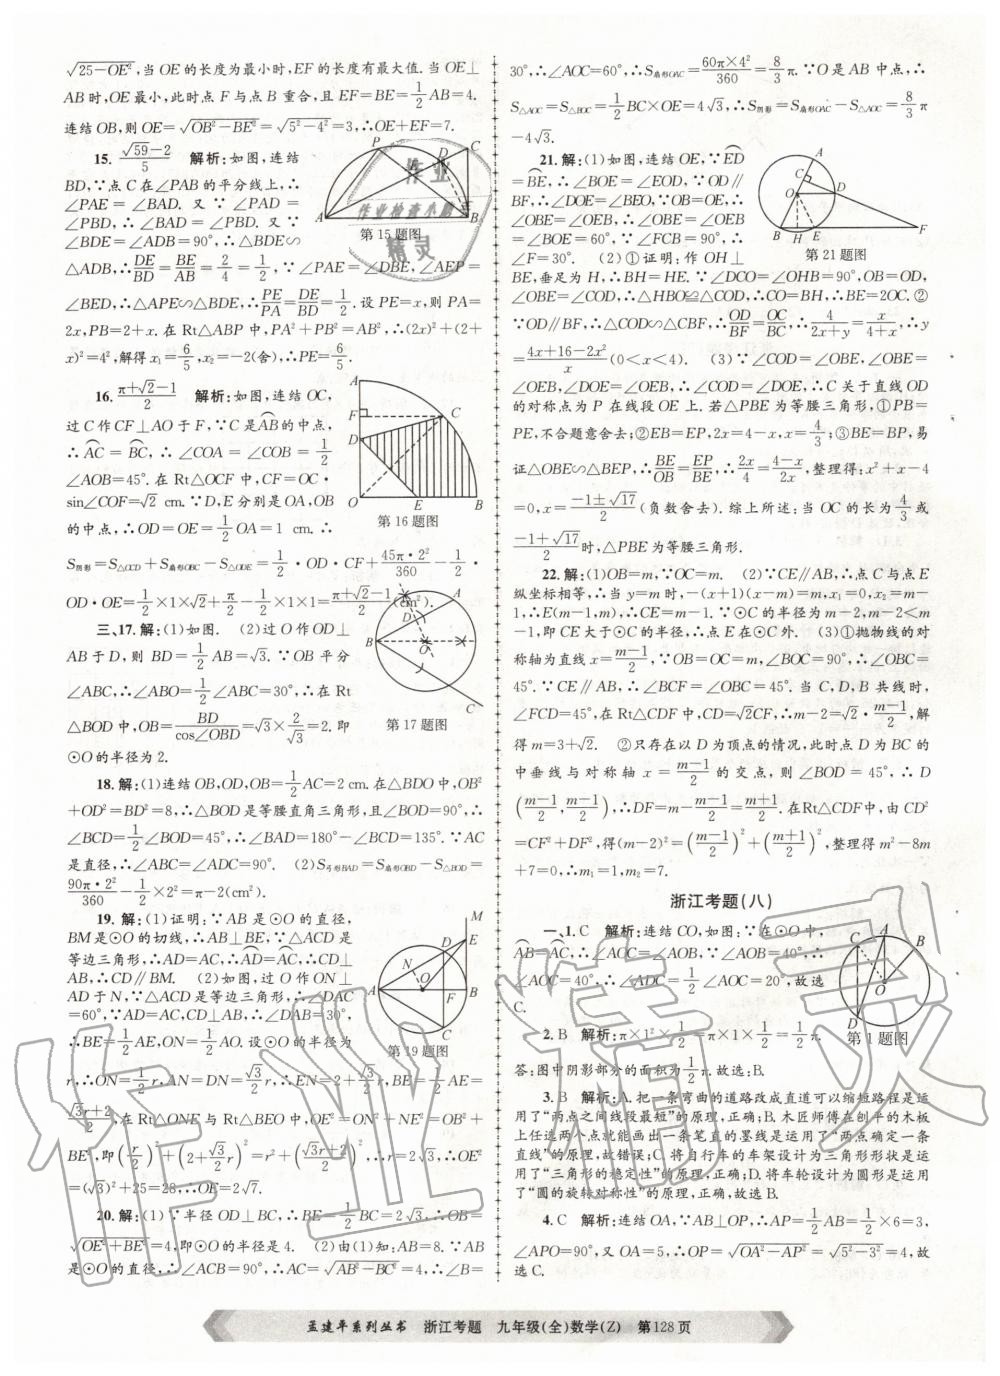 √(25－OE²),当OE的长度为最小时,EF的长度有最大值.当OE⊥
AB时,OE最小,此时点F与点B重合,且EF=BE=1/2AB=4.
连结OB,则OE=√(OB²－BE²)=√(5²－4²)=3,∴OE+EF=7.
15. (√59－2)/5 解析:如图,连结
BD,∵点C在∠PAB的平分线上,∴
∠PAE=∠BAD.又∵∠PAD=
∠PBD,∴∠BAD=∠PBD.又∵
∠BDE=∠ADB=90°,∴△BDE∽
△ADB,∴DE/BD=BE/AB=2/4=1/2,∵∠PAE=∠DBE,∠AEP=
∠BED,∴△APE∽△BDE,∴PE/PA=DE/BD=1/2.设PE=x,则PA=
2x,PB=2+x.在Rt△ABP中,PA²+PB²=AB²,∴(2x)²+(2+
x)²=4²,解得x₁=6/5,x₂=－2(舍),∴PE=6/5.
P D C A B
第15题图
16. (π+√2－1)/2 解析:如图,连结OC,
过C作CF⊥AO于F,∵C是AB的中点,
∴AC=BC,∴∠COA=∠COB=1/2
∠AOB=45°.在Rt△OCF中,CF=OC·
sin∠COF=√2 cm.∵D,E分别是OA,OB
的中点,∴OD=OE=1/2OA=1 cm.∴
S阴影=S△OCD+S扇形OBC－S△ODE=1/2·OD·CF+45π·2²/360－1/2·
OD·OE=1/2×1×√2+π/2－1/2×1×1=(π+√2－1)/2(cm²).
A F C D O E B
第16题图
三、17.解:(1)如图. (2)过O作OD⊥
AB于D,则BD=1/2AB=√3.∵OB平分
∠ABC,∴∠ABO=1/2∠ABC=30°,∴在Rt
△BOD中,OB=BD/cos∠OBD=√3×2/√3=2.即
⊙O的半径为2.
A D B O C
第17题图
18.解:(1)连结OB,OD,OB=1/2AC=2 cm.在△BDO中,OB²
+OD²=BD²=8,∴△BOD是等腰直角三角形,且∠BOD=90°,∴
∠BCD=1/2∠BOD=45°,∴∠BAD=180°－∠BCD=135°.∵AC
是直径,∴∠ABC=∠ADC=90°. (2)S弓形BAD=S扇形OBD－S△BOD=
90π·2²/360－1/2×2²=π－2(cm²).
19.解:(1)证明:∵AB是⊙O的直径,
BM是⊙O的切线,∴AB⊥BE,∵△ACD是
等边三角形,∴AD=AC,∴AD=AC,∴
AB⊥CD,∴CD∥BM. (2)如图,过O作ON⊥
AD于N,∵△ACD是等边三角形,∴∠DAC
=60°,∵AD=AC,CD⊥AB,∴∠DAB=30°,
∴BE=1/2AE,ON=1/2AO.设⊙O的半径为
r,∴ON=1/2r,AN=DN=√3/2r,∴EN=2+√3/2r,BE=1/2AE=
(√3r+2)/2,在Rt△ONE与Rt△BEO中,OE²=ON²+NE²=OB²+
BE²,即(r/2)²+(2+√3/2r)²=r²+((√3r+2)/2)²,∴r=2√3,∴OE²
=(√3)²+25=28,∴OE=2√7.
M D E N A O F B C
第19题图
20.解:(1)∵半径OD⊥BC,∴BE=1/2BC=2√3,∴OB=
√(OE²+BE²)=4,即⊙O的半径是4. (2)由(1)知:AB=8.∵AB
是⊙O的直径,∴∠ACB=90°,∴AC=√(AB²－BC²)=4,∴∠B=
30°,∴∠AOC=60°,∴S扇形OAC=60π×4²/360=8/3π.∵O是AB中点,∴
S△AOC=S△BOC=1/2BC×OE=4√3,∴S阴影=S扇形OAC－S△AOC=8/3π
－4√3.
21.解:(1)如图,连结OE,∵ED
=BE,∴∠BOE=∠EOD,∵OD∥
BF,∴∠DOE=∠BEO,∵OB=OE,∴
∠OBE=∠OEB,∴∠OBE=∠OEB
=∠BOE=60°,∵∠FCB=90°,∴
∠F=30°. (2)①证明:作OH⊥
BE,垂足为H,∴BH=HE.∵∠DCO=∠OHB=90°,OB=OD,
∠OBE=∠COD,∴△HBO≌△COD,∴CO=BH,∴BE=2OC.②
∵OD∥BF,∴△COD∽△CBF,∴OD/BF=OC/BC,∴4/(2x+y)=x/(4+x),∴y
=(4x+16－2x²)/x(0<x<4). (3)∵∠COD=∠OBE,∠OBE=
∠OEB,∠DOE=∠OEB,∴∠COD=∠DOE,∴C关于直线OD
的对称点为P在线段OE上.若△PBE为等腰三角形,①PB=
PE,不合题意舍去;②EB=EP,2x=4－x,x=4/3;③BE=BP,易
证△OBE∽△BEP,∴BE/OB=EP/BE,∴2x/4=(4－x)/2x,整理得:x²+x－4
=0,x=(－1±√17)/2(负数舍去).综上所述:当OC的长为4/3或
(－1+√17)/2时,△PBE为等腰三角形.
A C O D B H E F
第21题图
22.解:(1)OB=m,∵OC=m. (2)∵CE∥AB,∴点C与点E
纵坐标相等,∴当y=m时,－(x+1)(x－m)=m,x₁=0,x₂=m
－1,∴E(m－1,m),∴CE=m－1.∵⊙C的半径为m－2,m－2<m
－1,即CE大于⊙C的半径,∴点E在⊙C外. (3)①抛物线的对
称轴为直线x=(m－1)/2,∵OB=OC=m,∠BOC=90°,∴∠OBC=
45°.∵CE∥AB,∴∠BCF=∠OBC=45°.当C,D,B共线时,
∠FCD=45°,在Rt△CDF中,CD=√2CF,∴m－2=√2·(m－1)/2,解
得m=3+√2. ②只存在以D为顶点的情况,此时点D为BC的
中垂线与对称轴x=(m－1)/2的交点,则∠BOD=45°,∴D
((m－1)/2,(m－1)/2),∴DF=m－(m－1)/2=(m+1)/2.在Rt△CDF中,由CD²
=CF²+DF²,得(m－2)²=((m－1)/2)²+((m+1)/2)²,整理得m²－8m
+7=0,∴m₁=1,m₂=7.
浙江考题(八)
一、1.C 解析:连结CO,如图:∵在⊙O中,
AB=AC,∴∠AOC=∠AOB,∵∠AOB=40°,∴
∠AOC=40°,∴∠ADC=1/2∠AOC=20°,故选
C.
A C B O D
第1题图
2.B 解析:π×1²×1/2=π×1×1/2=1/2π.
答:图中阴影部分的面积为1/2π.故选B.
3.B 解析:A.把一条弯曲的道路改成直道可以缩短路程是运
用了“两点之间线段最短”的原理,正确;B.木匠师傅在刨平的木板
上任选两个点就能画出一条笔直的墨线是运用了“两点确定一条
直线”的原理,故错误;C.将自行车的车架设计为三角形形状是运
用了“三角形的稳定性”的原理,正确;D.将车轮设计为圆形是运用
了“圆的旋转对称性”的原理,正确,故选B.
4.C 解析:连结OA,∵AB⊥OP,∴AP=1/2AB=1/2×6=3,
∠APO=90°,又OA=5,∴OP=√(OA²－AP²)=√(5²－3²)=4,故
选C.
作业精灵
作业
作业检查小助
精灵
孟建平系列丛书 浙江考题 九年级(全)数学(Z) 第128页